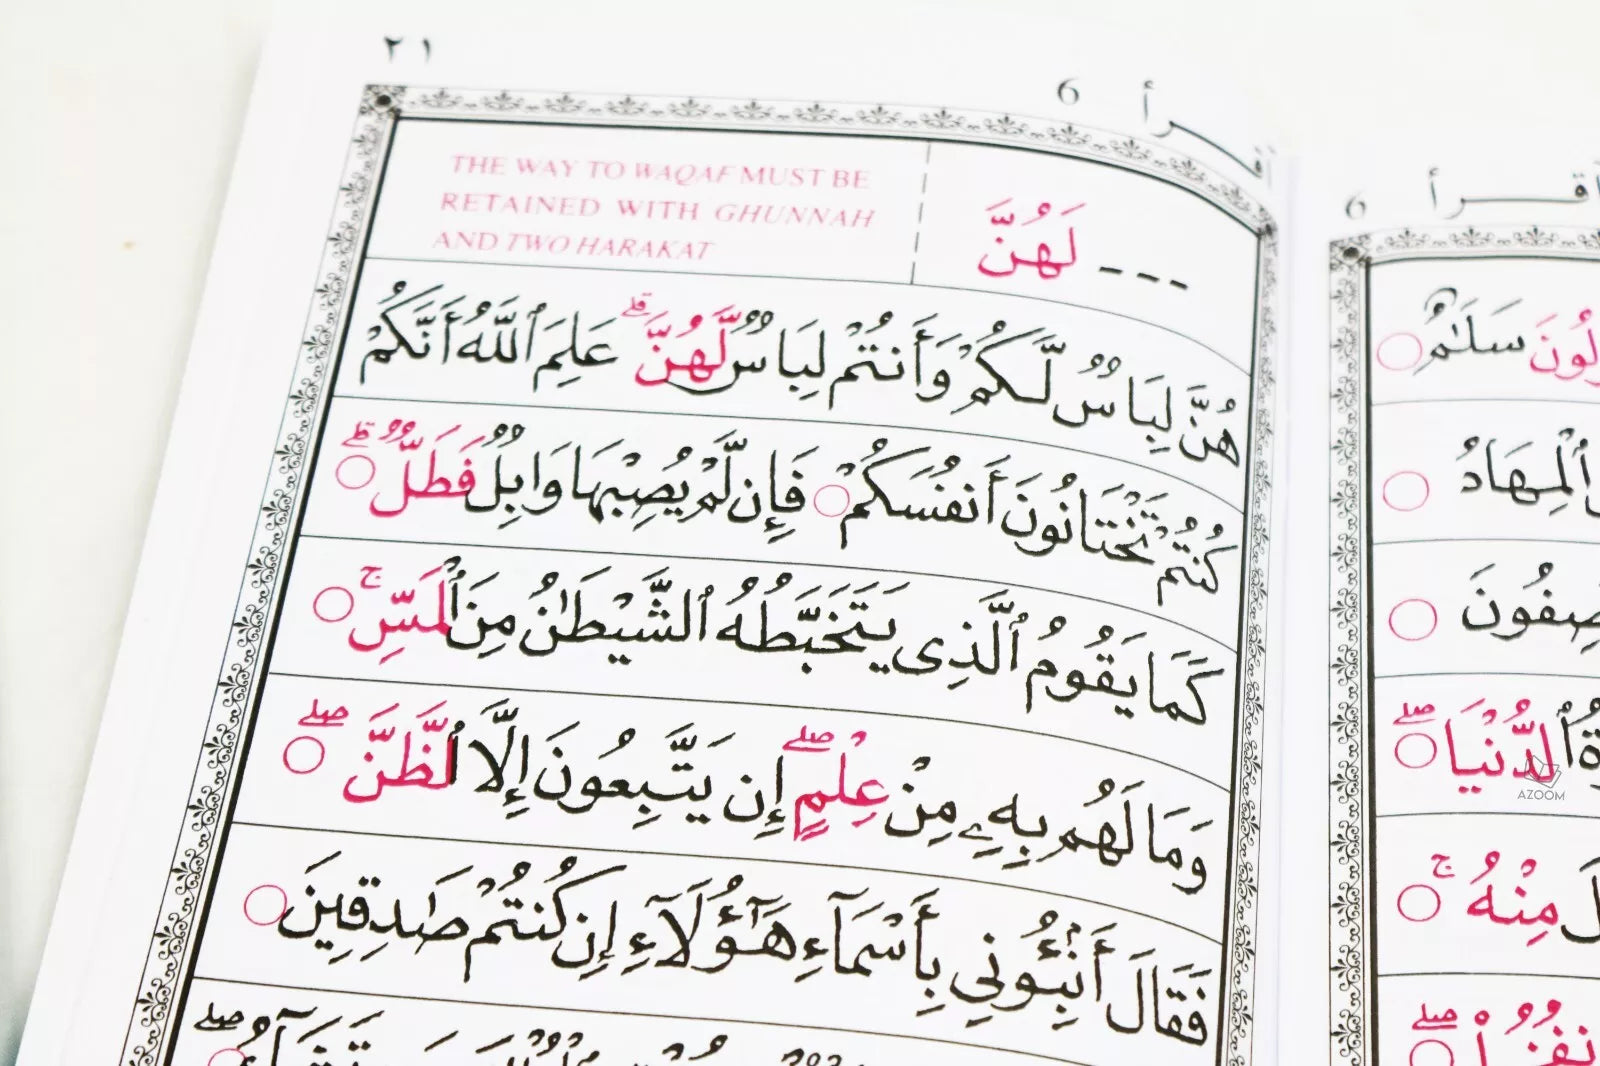 ٢١
6
اقرأ
THE WAY TO WAQAF MUST BE
RETAINED WITH GHUNNAH
AND TWO HARAKAT
--- لَهُنَّ
هُنَّ لِبَاسٌ لَّكُمْ وَأَنتُمْ لِبَاسٌ لَّهُنَّ ۗ عَلِمَ ٱللَّهُ أَنَّكُمْ
كُنتُمْ تَخْتَانُونَ أَنفُسَكُمْ ○ فَإِن لَّمْ يُصِبْهَا وَابِلٌ فَطَلٌّ ۗ ○
كَمَا يَقُومُ ٱلَّذِى يَتَخَبَّطُهُ ٱلشَّيْطَـٰنُ مِنَ ٱلْمَسِّ ۚ ○
وَمَا لَهُم بِهِۦ مِنْ عِلْمٍ ۖ إِن يَتَّبِعُونَ إِلَّا ٱلظَّنَّ ۖ ○
فَقَالَ أَنۢبِـُٔونِي بِأَسْمَآءِ هَـٰٓؤُلَآءِ إِن كُنتُمْ صَـٰدِقِينَ ○
6
اقرأ
سَلَـٰمٌ ○
ٱلْمِهَادُ ○
○
ٱلدُّنْيَا ۖ ○
مِنْهُ ۚ ○
AZOOM